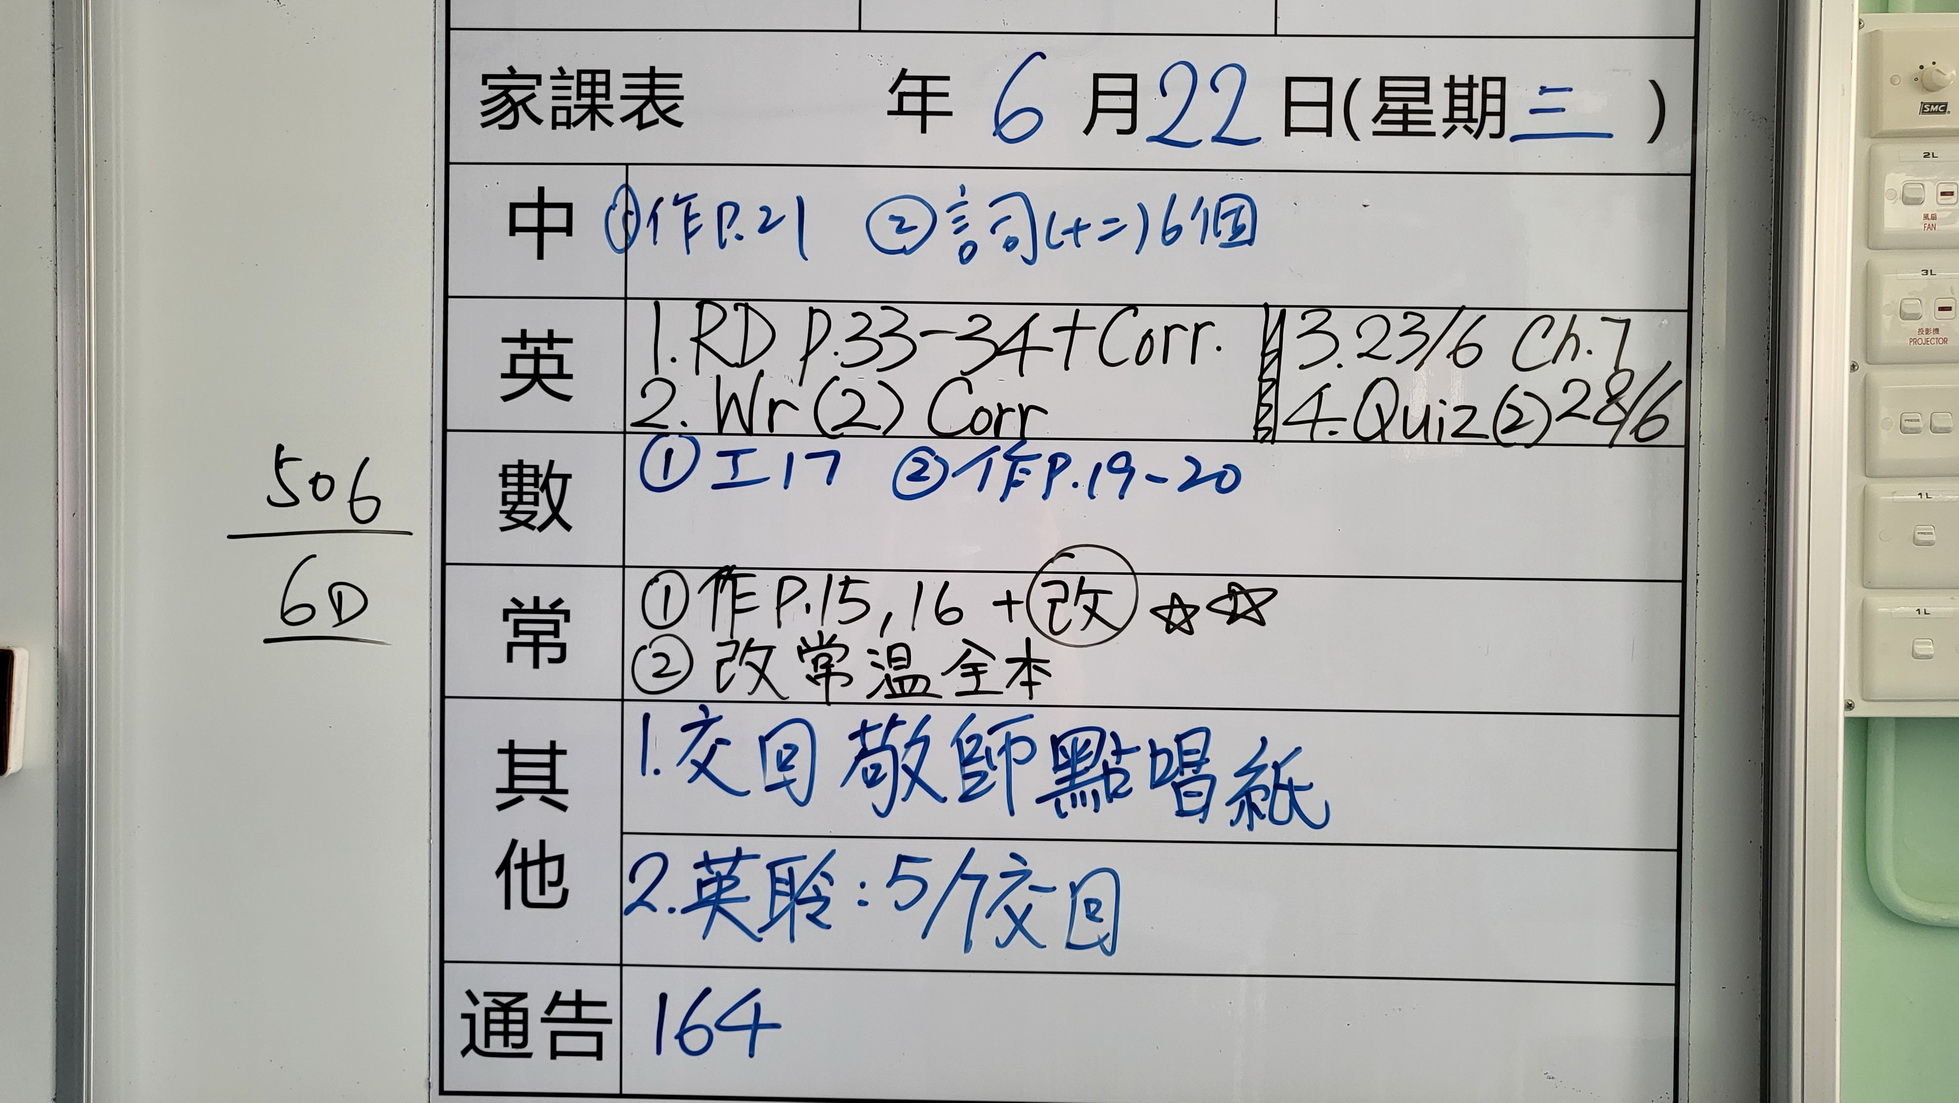 家課表 年 6 月 22 日(星期 三 )
中 ①作P.21 ②詞(十二)6個
英 1.RD p.33-34+Corr. 3.23/6 Ch.7
2. Wr (2) Corr 4.Quiz(2) 28/6
數 ①工17 ②作P.19-20
506
6D
常 ①作P.15,16 +改 ☆☆
②改常溫全本
其他 1.交回敬師點唱紙
2.英聆:5/7交回
通告 164
SMC
2L
風扇
FAN
3L
投影機
PROJECTOR
1L
1L